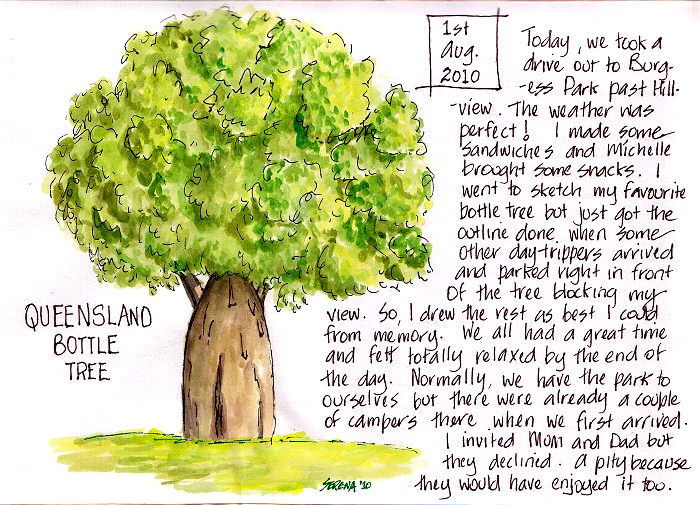 1st
Aug.
2010
Today, we took a
drive out to Burg-
-ess Park past Hill-
-view. The weather was
perfect! I made some
sandwiches and Michelle
brought some snacks. I
went to sketch my favourite
bottle tree but just got the
outline done when some
other day-trippers arrived
and parked right in front
of the tree blocking my
view. So, I drew the rest as best I could
from memory. We all had a great time
and felt totally relaxed by the end of
the day. Normally, we have the park to
ourselves but there were already a couple
of campers there when we first arrived.
I invited Mom and Dad but
they declined. A pity because
they would have enjoyed it too.
QUEENSLAND
BOTTLE
TREE
SERENA '10